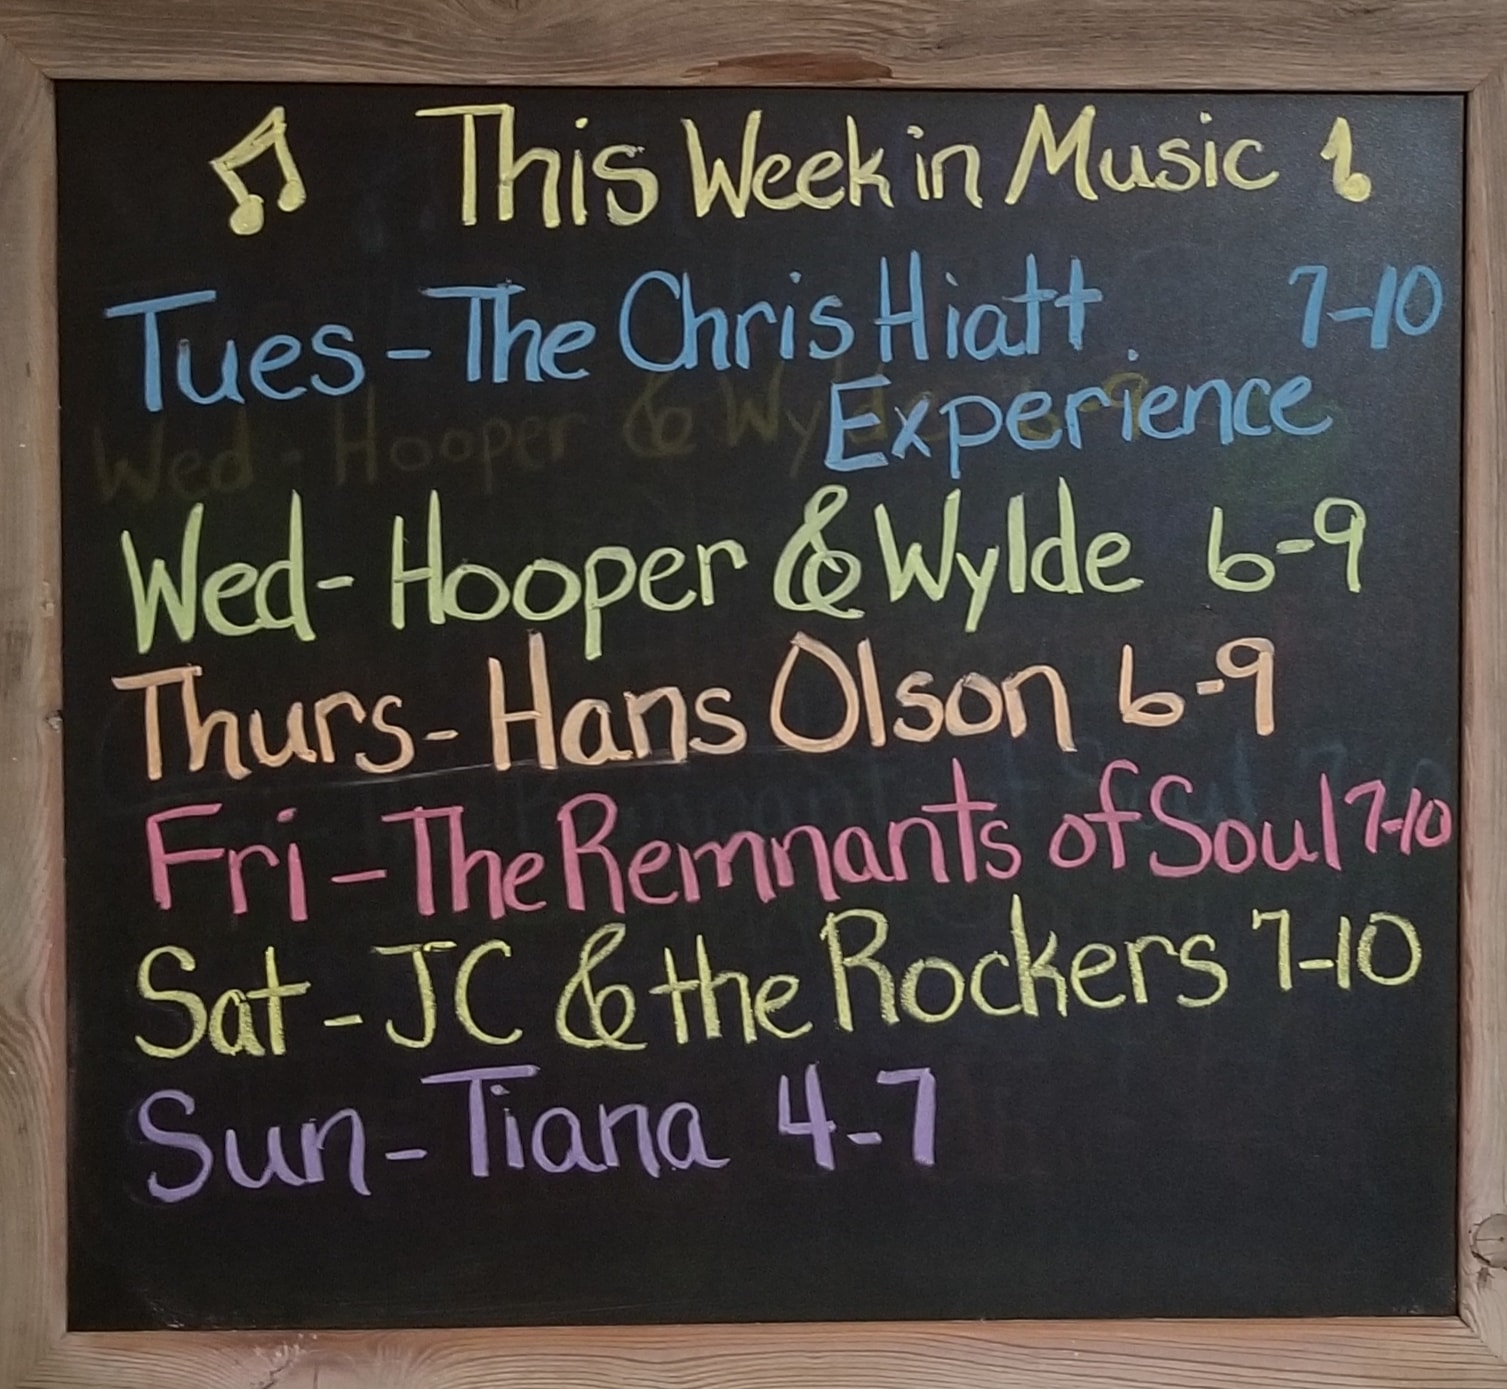 This Week in Music
Tues - The Chris Hiatt 7-10
Experience
Wed - Hooper & Wylde 6-9
Wed - Hooper & Wylde 6-9
Thurs - Hans Olson 6-9
Fri - The Remnants of Soul 7-10
Sat - JC & the Rockers 7-10
Sun - Tiana 4-7